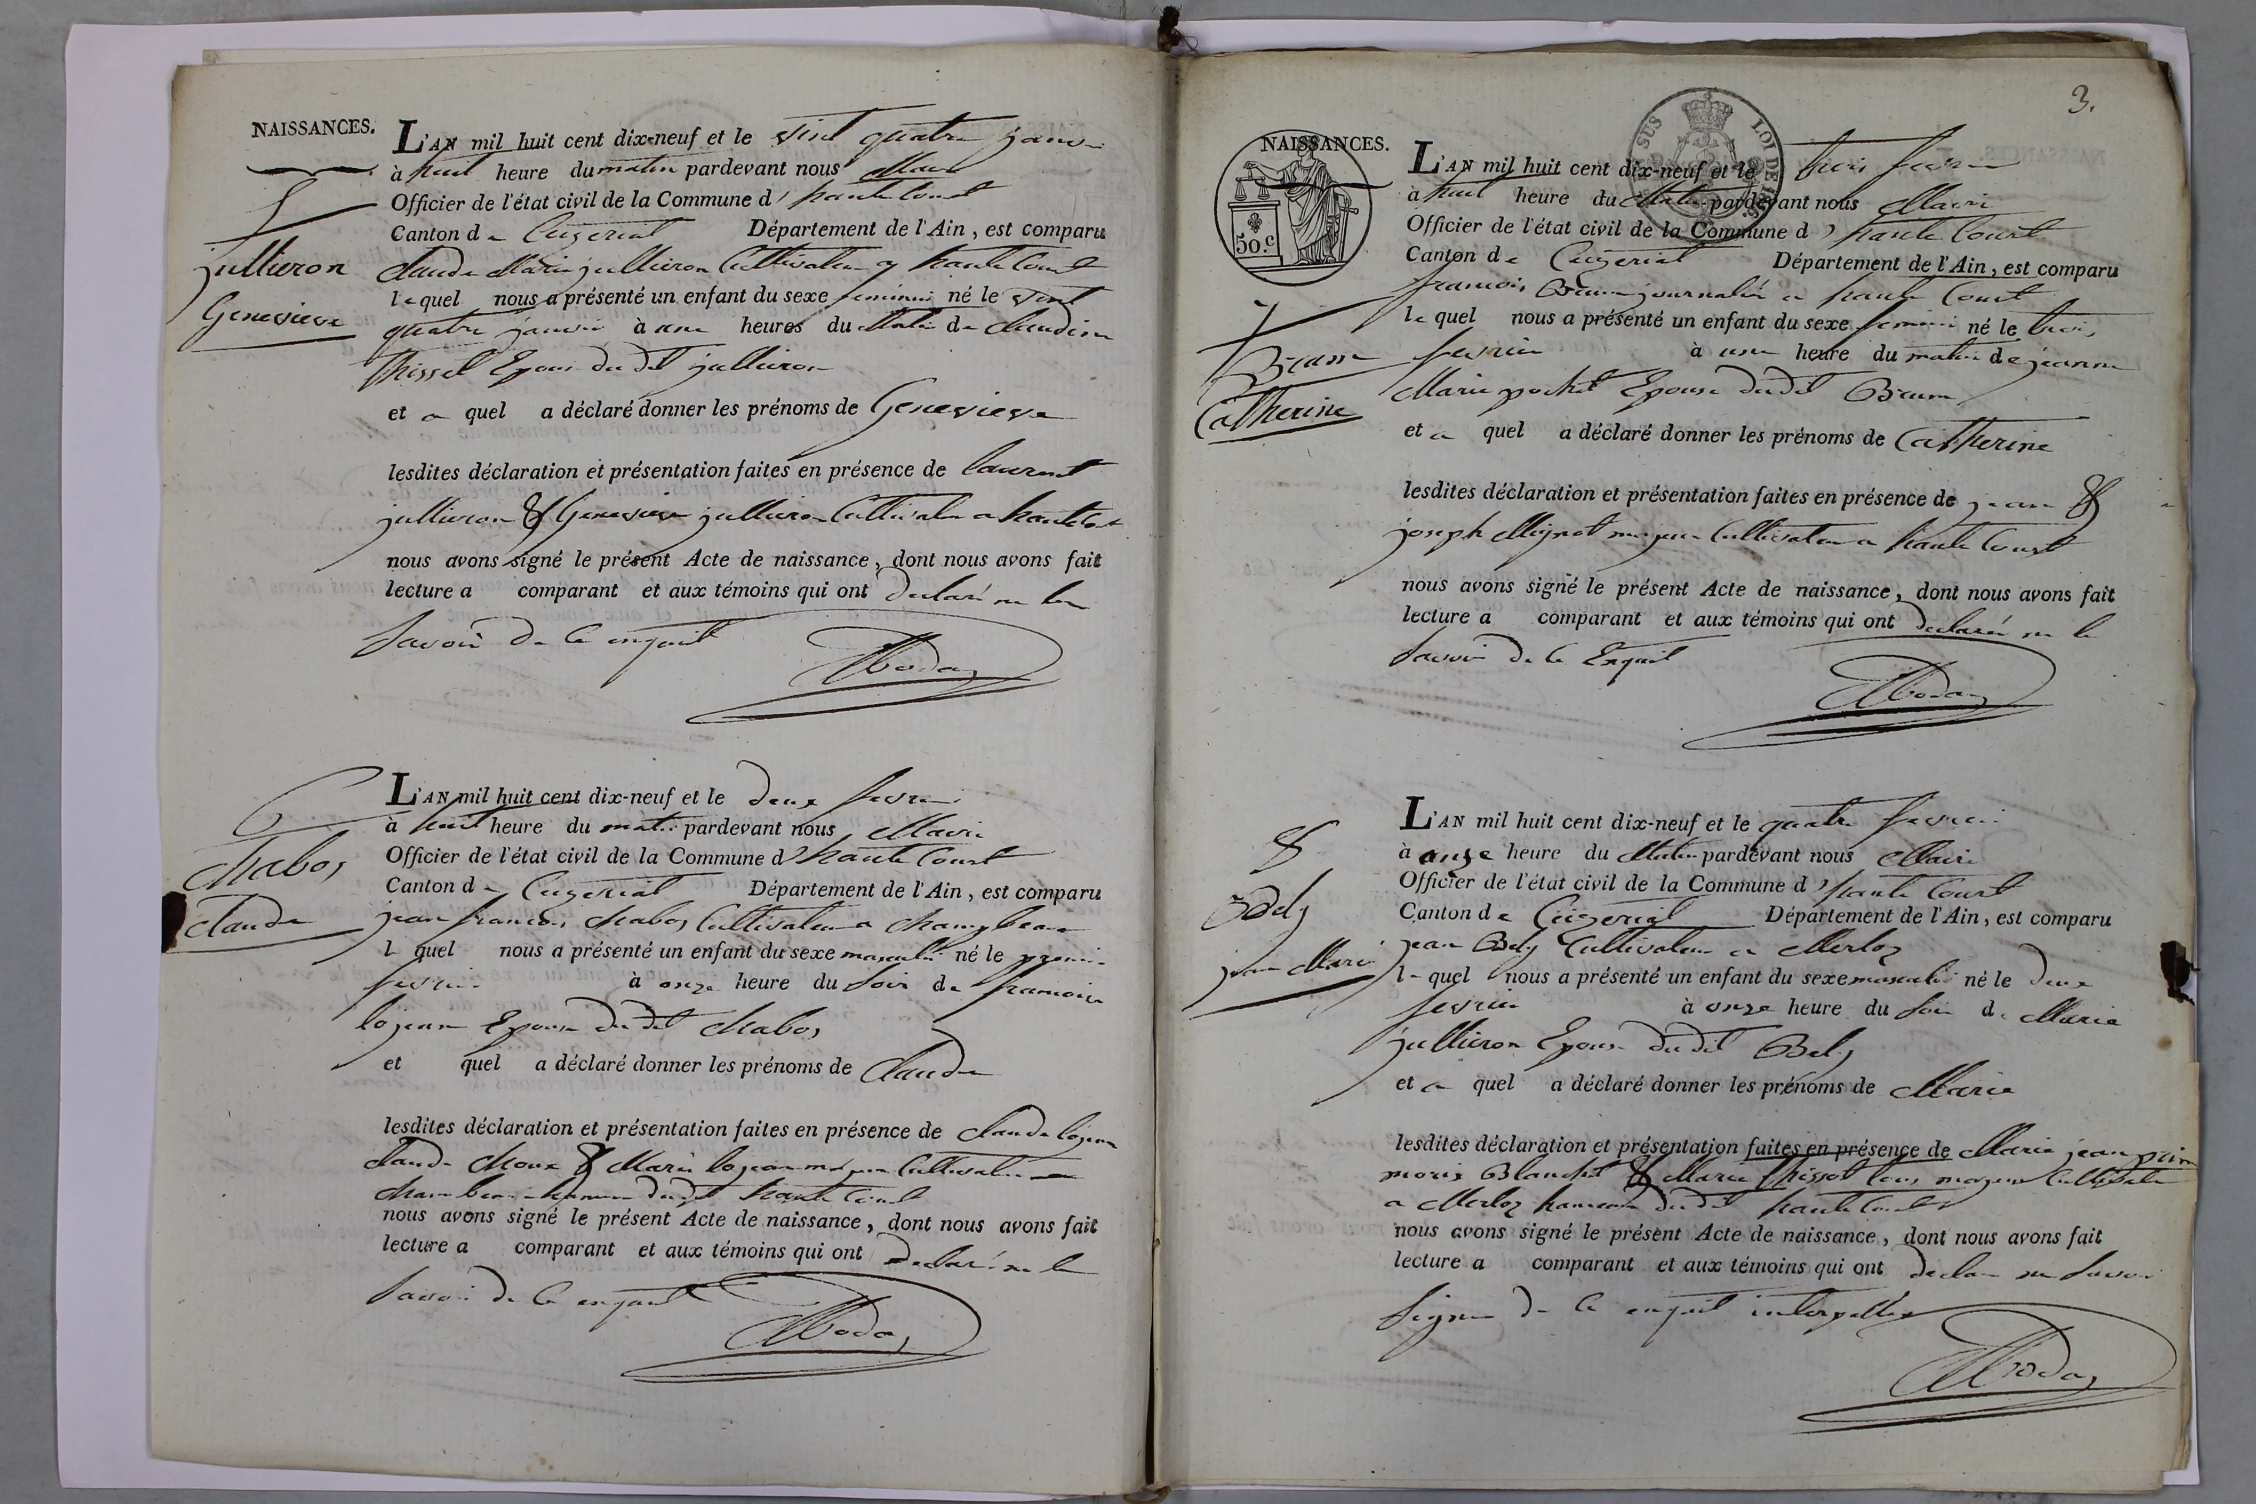 NAISSANCES.
L'AN mil huit cent dix-neuf et le vint quatre janv
à huit heure du matin pardevant nous Maire
Officier de l'état civil de la Commune d' hautecourt
Canton de Ceyzeriat Département de l'Ain, est comparu
5
jullieron
Genevieve
Claude Marie jullieron Cultivateur a hautecourt
le quel nous a présenté un enfant du sexe feminin né le vint
quatre janvier à une heures du Matin de Claudine
Epouse du dit jullieron
et a quel a déclaré donner les prénoms de Genevieve
lesdites déclaration et présentation faites en présence de laurent
jullieron & Genevieve jullieron Cultivateur a hautecourt
nous avons signé le présent Acte de naissance, dont nous avons fait
lecture a comparant et aux témoins qui ont declaré ne le
savoir de ce enquit
6
Chabos
Claude
L'AN mil huit cent dix-neuf et le deux fevrie
à huit heure du matin pardevant nous Maire
Officier de l'état civil de la Commune d' haute Court
Canton de Ceyzeriat Département de l'Ain, est comparu
jean francois Chabos Cultivateur a
l quel nous a présenté un enfant du sexe masculin né le premie
fevrie à onze heure du soir de francoise
lojean Epouse du dit Chabos
et quel a déclaré donner les prénoms de Claude
lesdites déclaration et présentation faites en présence de Claude lojean
Claude & Marie lojean majeur Cultivateur a
hameau du dit haute Court
nous avons signé le présent Acte de naissance, dont nous avons fait
lecture a comparant et aux témoins qui ont declaré ne le
savoir de ce enquit
3.
NAISSANCES.
50.c
SUS LOI DE 18
L'AN mil huit cent dix-neuf et le trois fevrie
à huit heure du Matin pardevant nous Maire
Officier de l'état civil de la Commune d' haute Court
Canton de Ceyzeriat Département de l'Ain, est comparu
7
Catherine
francois journalié a haute Court
le quel nous a présenté un enfant du sexe feminin né le trois
fevrier à une heure du matin de jeanne
Marie pochet Epouse du dit
et a quel a déclaré donner les prénoms de Catherine
lesdites déclaration et présentation faites en présence de jean &
joseph Mignot majeur Cultivateur a haute Court
nous avons signé le présent Acte de naissance, dont nous avons fait
lecture a comparant et aux témoins qui ont declaré ne le
savoir de ce Enquit
8
Bely
jean Marie
L'AN mil huit cent dix-neuf et le quatre fevrie
à onze heure du Matin pardevant nous Maire
Officier de l'état civil de la Commune d' haute Court
Canton de Ceyzeriat Département de l'Ain, est comparu
jean Bely Cultivateur a Merloz
le quel nous a présenté un enfant du sexe masculin né le deux
fevrier à onze heure du soir de Marie
jullieron Epouse du dit Bely
et a quel a déclaré donner les prénoms de Marie
lesdites déclaration et présentation faites en présence de Marie jean
Blanchet & Marie tous majeur Cultivateur
a Merloz hameau du dit haute Court
nous avons signé le présent Acte de naissance, dont nous avons fait
lecture a comparant et aux témoins qui ont declaré ne savoir
signer de ce enquit interpellés